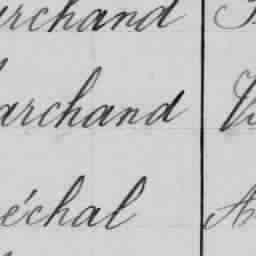 archand
archand
échal